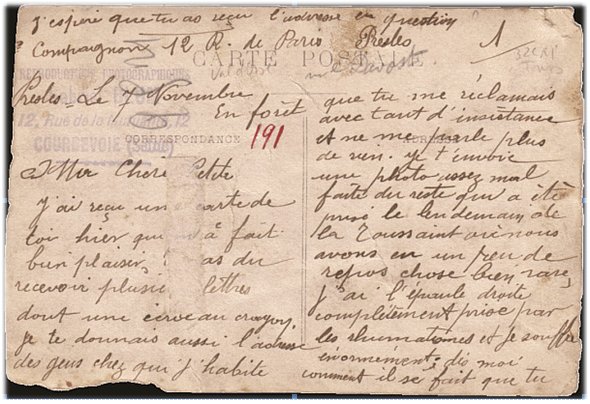 J'espère que tu as reçu l'adresse en question
Compagnon 12 R. de Paris Presles 1
CARTE POSTALE
REPRODUCTIONS PHOTOGRAPHIQUES
12, Rue de la 12
COURBEVOIE (Seine)
Presles, Le 7 Novembre
En forêt
CORRESPONDANCE
191
ADRESSE
Ma Chère Petite
J'ai reçu une carte de
toi hier qui m'a fait
bien plaisir, as du
recevoir plusieurs lettres
dont une écrve au crayon,
je te donnais aussi l'adresse
des gens chez qui j'habite
que tu me réclamais
avec tant d'insistance
et ne me parle plus
de rien. Je t'envoie
une photo assez mal
faite du reste qui a été
prise le lendemain de
la Toussaint où nous
avons eu un peu de
repos chose bien rare,
J'ai l'épaule droite
complètement prise par
les rhumatismes et je souffre
énormément. dis moi
comment il se fait que tu